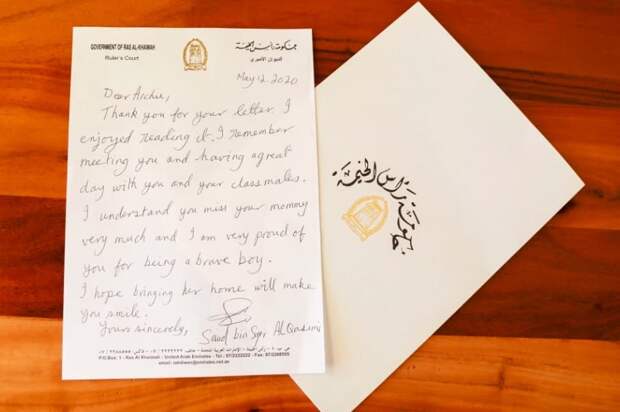 GOVERNMENT OF RAS AL-KHAIMAH
Ruler's Court
حكومة رأس الخيمة
الديوان الأميري
May 12 2020
Dear Archie,
Thank you for your letter. I
enjoyed reading it. I remember
meeting you and having a great
day with you and your classmates.
I understand you miss your mommy
very much and I am very proud of
you for being a brave boy.
I hope bringing her home will make
you smile.
Yours sincerely,
Saud bin Saqr Al Qasimi
P.O.Box: 1 - Ras Al Khaimah - United Arab Emirates - Tel: - Fax:
حكومة رأس الخيمة